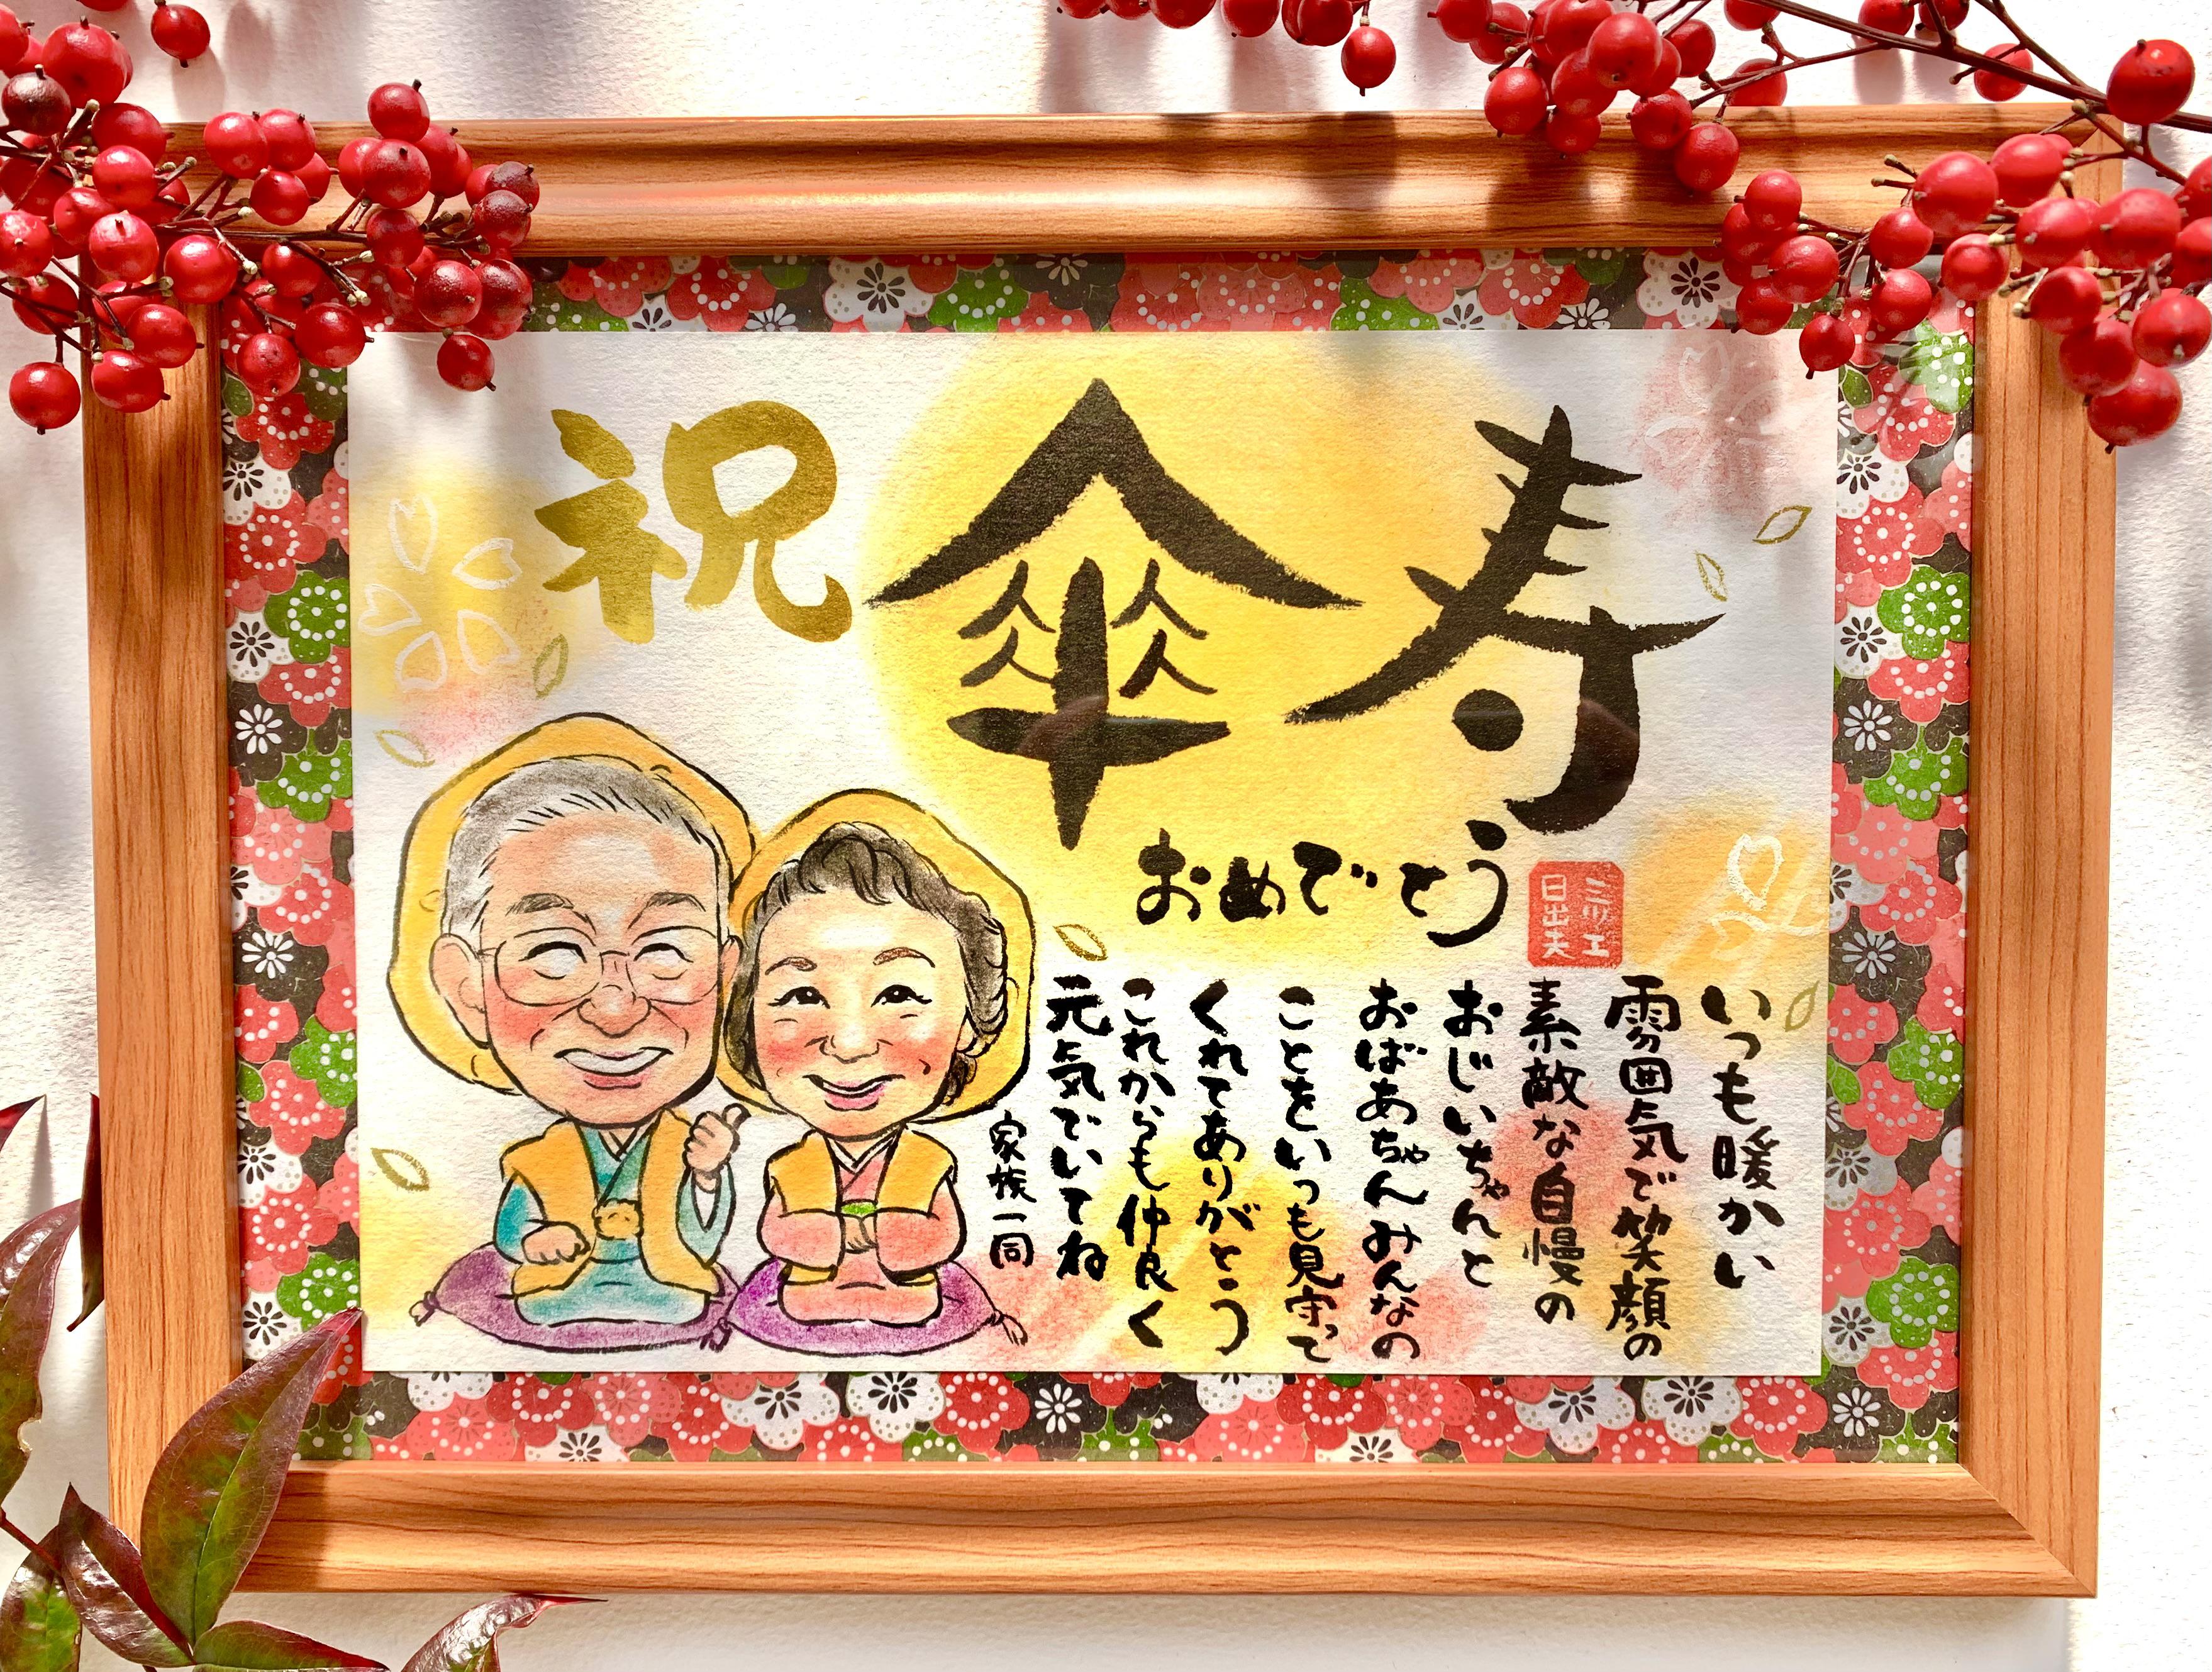 祝 傘寿
おめでとう
三ツ工
日出夫
いつも暖かい
雰囲気で笑顔の
素敵な自慢の
おじいちゃんと
おばあちゃんみんなの
ことをいつも見守って
くれてありがとう
これからも仲良く
元気でいてね
家族一同